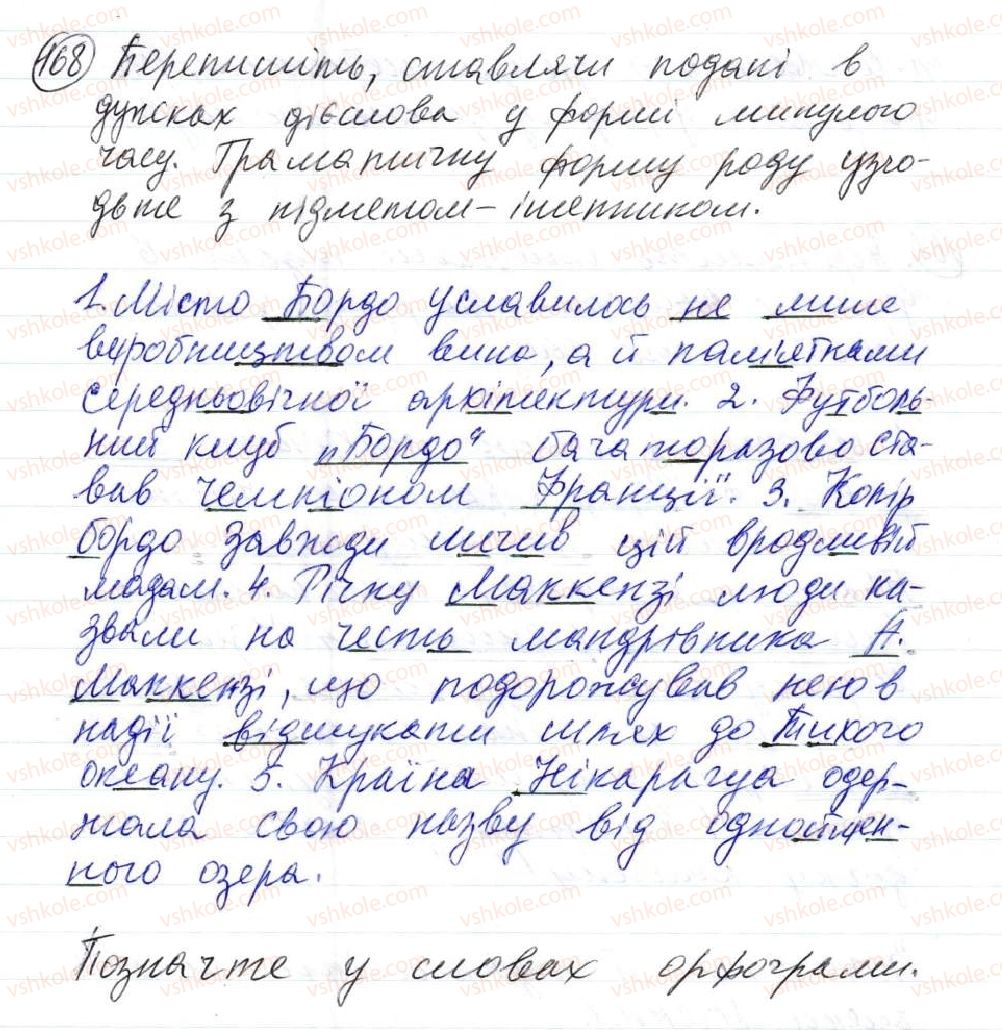 168 Перепишіть, ставлячи подані в
дужках дієслова у формі минулого
часу. Граматичну форму роду узго-
дьте з підметом-іменником.
1. Місто Бордо уславилось не лише
виробництвом вина, а й пам'ятками
середньовічної архітектури. 2. Футболь-
ний клуб „Бордо" багаторазово ста-
вав чемпіоном Франції. 3. Колір
бордо завжди личив цій вродливій
мадам. 4. Річку Маккензі люди на-
звали на честь мандрівника А.
Маккензі, що подорожував нею в
надії відшукати шлях до Тихого
океану. 5. Країна Нікарагуа одер-
жала свою назву від однаймен-
ного озера.
Позначте у словах орфограми.